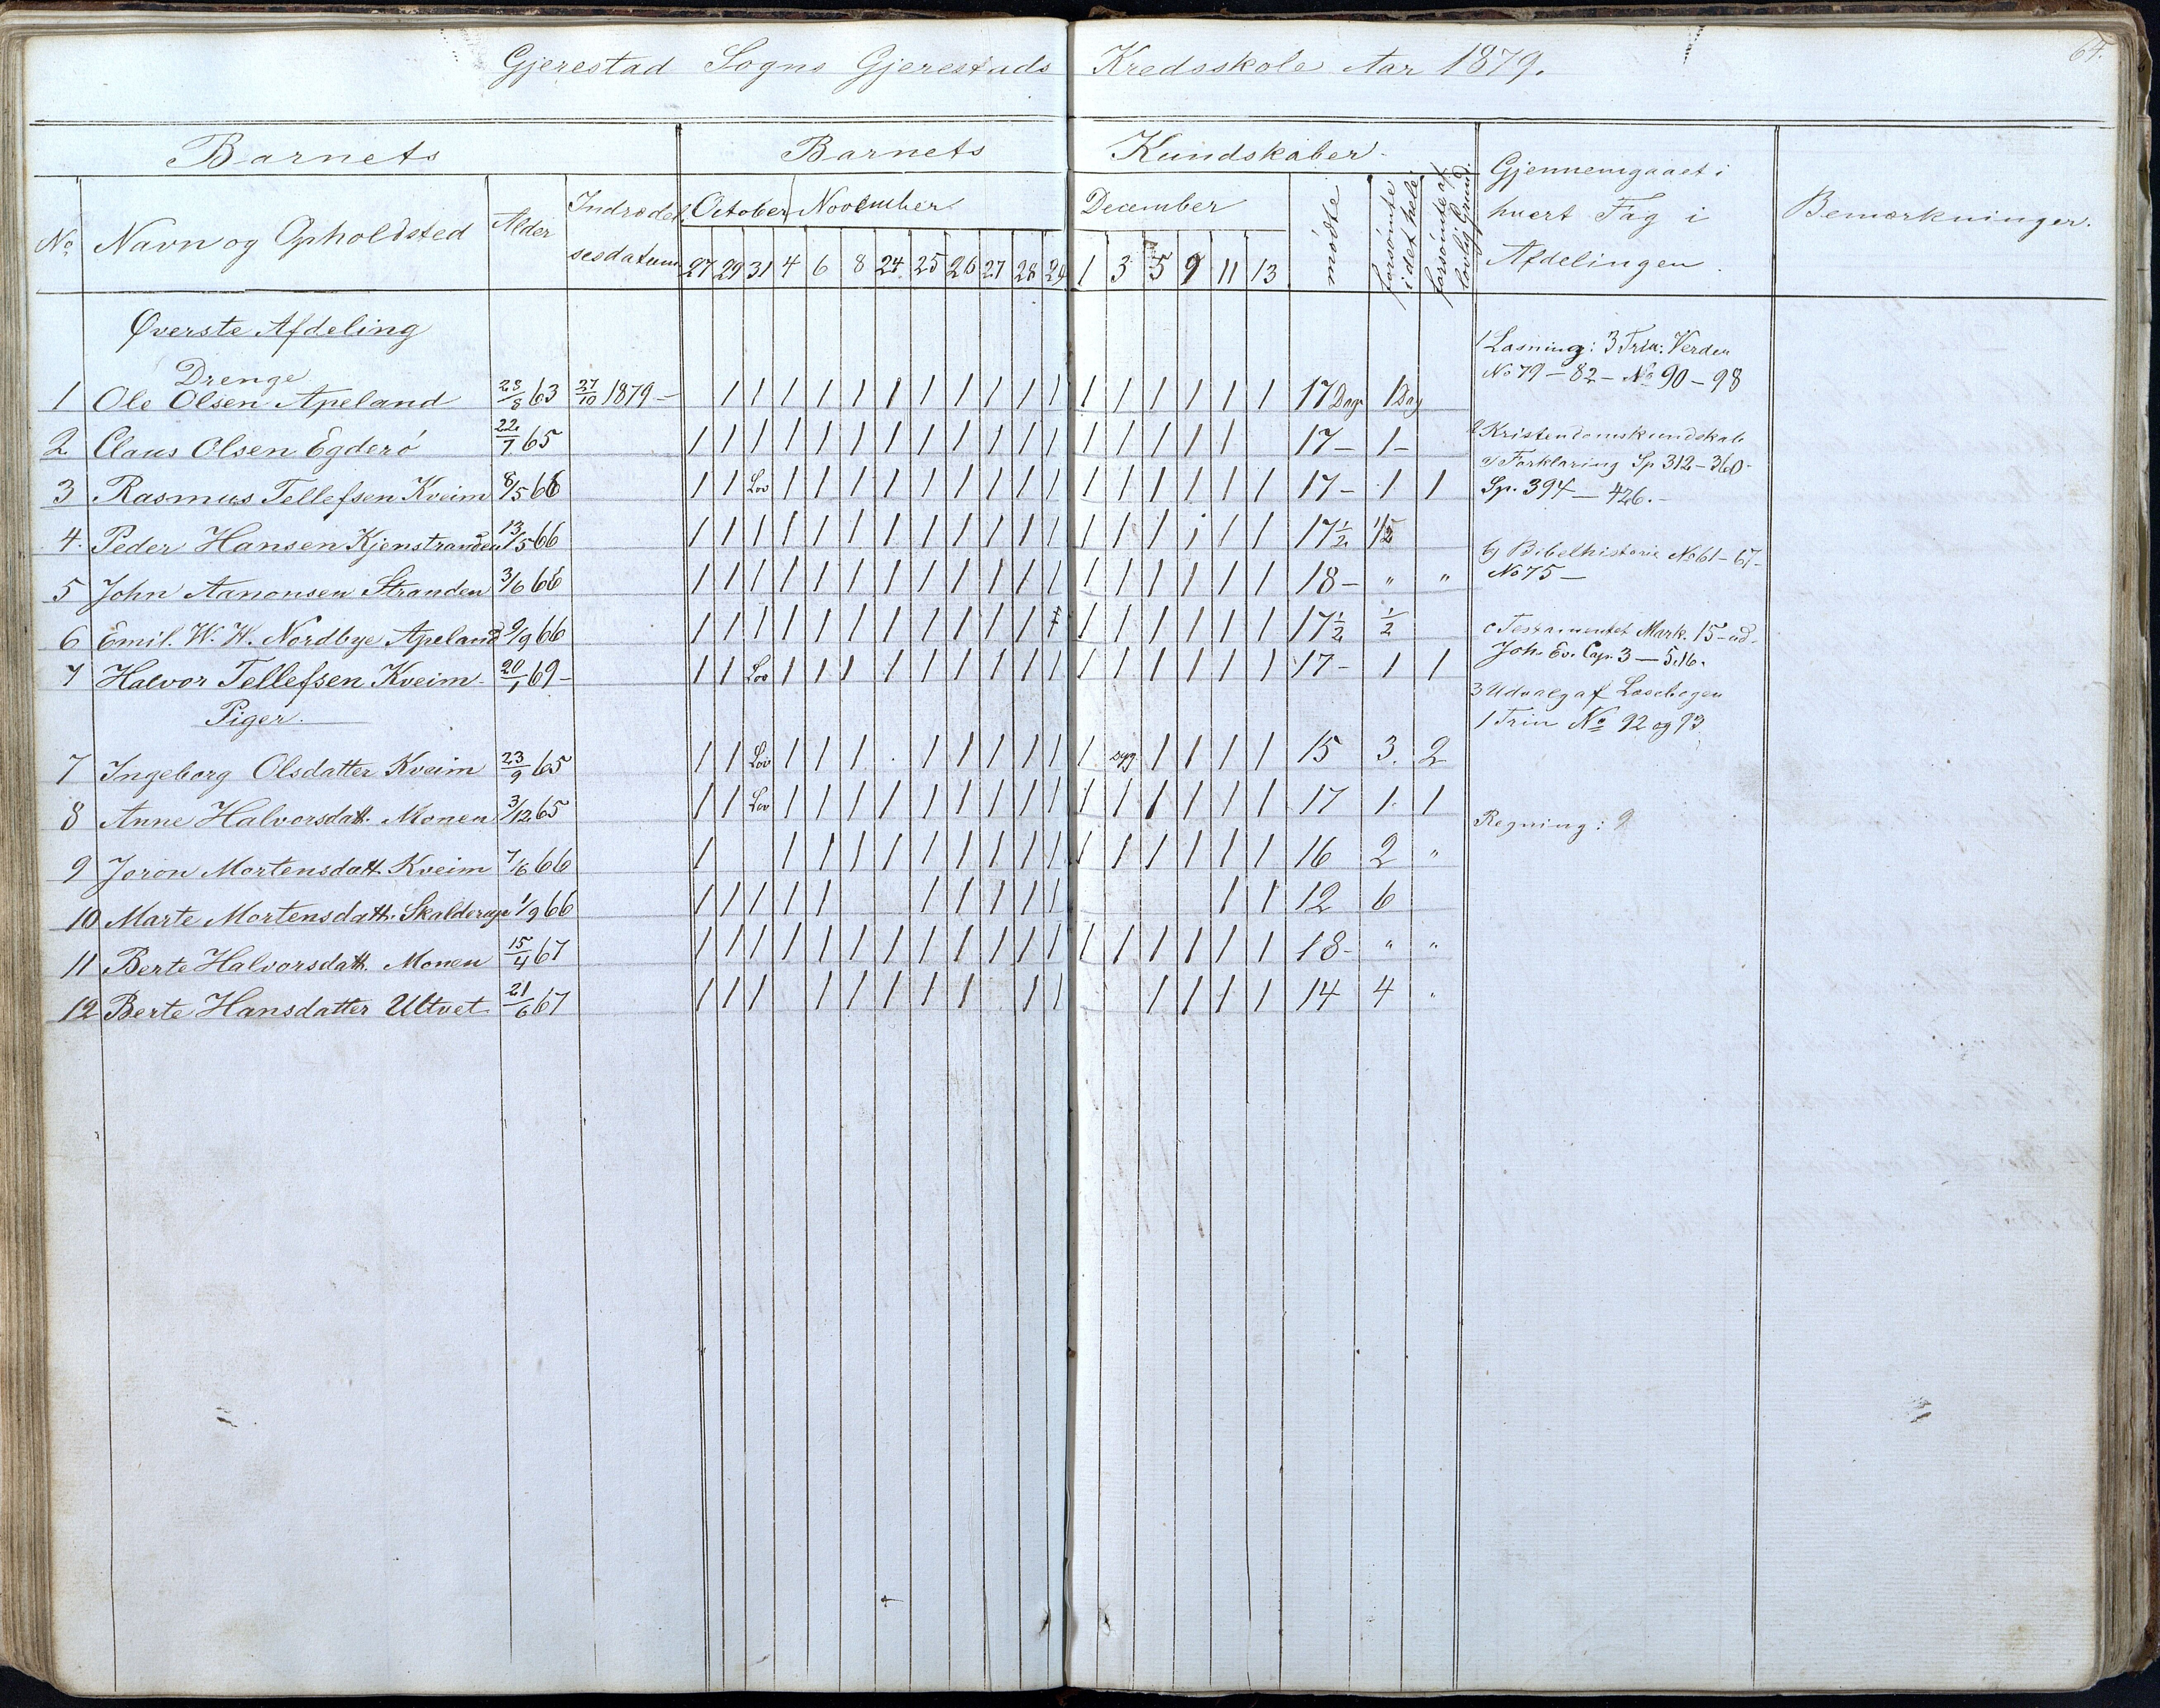 64.
Gjerestad Sogns Gjerestads Kredsskole Aar 1879.
Barnets Barnets Kundskaber
No Navn og Opholdsted Alder Indrædelsesdatum October November December mødte forsømte i det hele forsømte af lovlig Grund. Gjennemgaaet i hvert Fag i Afdelingen. Bemærkninger.
27 29 31 4 6 8 24 25 26 27 28 29 1 3 5 9 11 13
Øverste Afdeling
Drenge
1 Ole Olsen Apeland 28/8 63 27/10 1879 – 1 1 1 1 1 1 1 1 1 1 1 1 1 1 1 1 1 17 Dage 1 Dag
2 Claus Olsen Egderø 22/7 65 1 1 1 1 1 1 1 1 1 1 1 1 1 1 1 1 1 17 – 1 –
3 Rasmus Tellefsen Kveim 8/5 66 1 1 Lov 1 1 1 1 1 1 1 1 1 1 1 1 1 1 1 17 – 1 1
4. Peder Hansen Kjenstranden 13/5 66 1 1 1 1 1 1 1 1 1 1 1 1 1 1 1 1 1 1 17½ ½
5 John Aanonsen Stranden 3/6 66 1 1 1 1 1 1 1 1 1 1 1 1 1 1 1 1 1 1 18 – " "
6 Emil. W. W. Nordbye Apeland 9/9 66 1 1 1 1 1 1 1 1 1 1 1 1 1 1 1 1 1 17½ ½
7 Halvor Tellefsen Kveim 20/1 69 – 1 1 Lov 1 1 1 1 1 1 1 1 1 1 1 1 1 1 1 17 – 1 1
Piger.
7 Ingeborg Olsdatter Kveim 23/9 65 1 1 Lov 1 1 1 1 1 1 1 1 1 syg 1 1 1 1 15 3. 2
8 Anne Halvorsdatt. Monen 3/12 65 1 1 Lov 1 1 1 1 1 1 1 1 1 1 1 1 1 1 1 17 1. 1
9 Joron Mortensdatt. Kveim 7/6 66 1 1 1 1 1 1 1 1 1 1 1 1 1 1 1 1 16 2 "
10 Marte Mortensdatt. Skalderup 1/9 66 1 1 1 1 1 1 1 1 1 1 1 1 12 6
11 Berte Halvorsdatt. Monen 15/4 67 1 1 1 1 1 1 1 1 1 1 1 1 1 1 1 1 1 1 18 – " "
12 Berte Hansdatter Ultvet 21/6 67 1 1 1 1 1 1 1 1 1 1 1 1 1 1 14 4 "
1 Læsning: 3 Trin: Verden
No 79 – 82 – No 90 – 98
2 Kristendomskundskab
a) Forklaring Sp 312 – 360 –
Sp. 394 – 426. –
b) Bibelhistorie No 61 – 67 –
No 75 –
c Testamentet Mark. 15 – ud.
Joh. Ev. Cap. 3 – 5.16.
3 Udvalg af Læsebogen
1 Trin No 92 og 93
Regning: 9